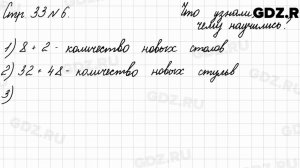 Стр. 33 № 6.
Что узнали.
чему научились?
GDZ.RU
1) 8 + 2 - количество новых столов
2) 32 + 48 - количество новых стульв
3)